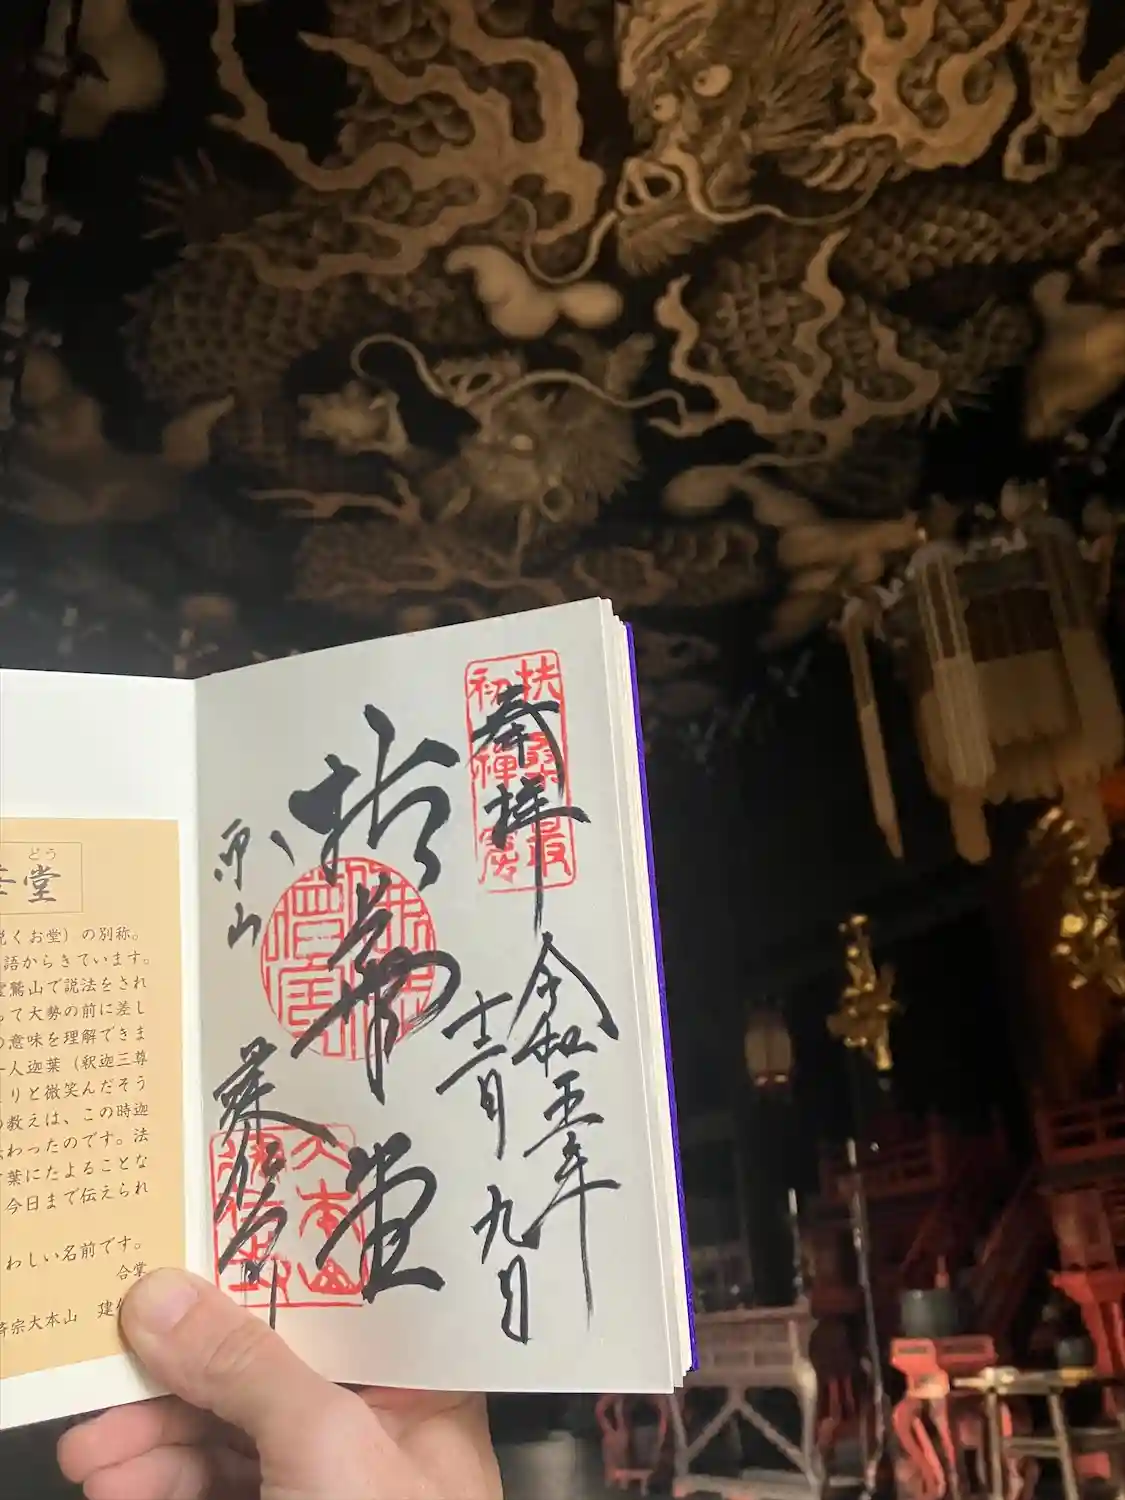 奉拝
扶桑最
初禅窟
令和五年
十二月九日
拈華堂
東山
建仁寺
大本山
建仁寺
どう
堂
くお堂）の別称。
語からきています。
霊鷲山で説法をされ
って大勢の前に差し
の意味を理解できま
一人迦葉（釈迦三尊
りと微笑んだそう
の教えは、この時迦
伝わったのです。法
葉にたよることな
今日まで伝えられ
わしい名前です。
合掌
済宗大本山 建